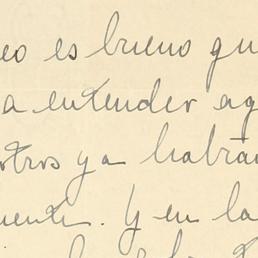 eo es bueno qu
a entender ag
otros ya habrán
uente. Y en la